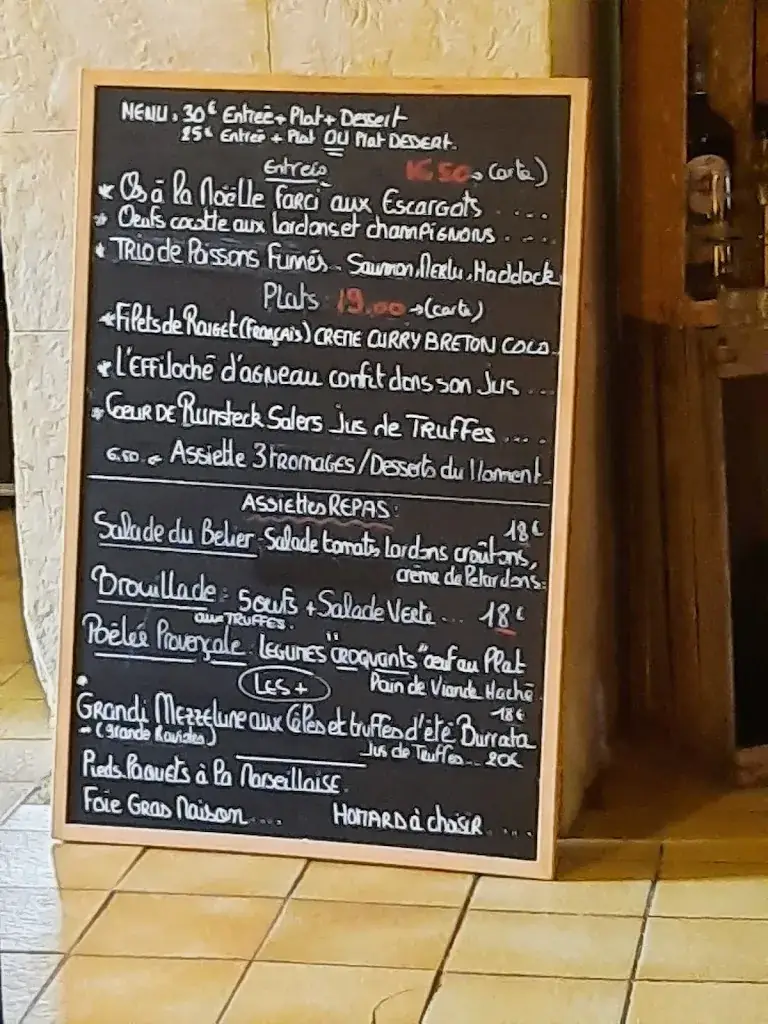 MENU : 30€ Entrée + Plat + Dessert
25€ Entrée + Plat OU Plat DESSERT.
Entrées 16.50 → Carte)
* Os à la Moëlle FARCI aux Escargots ....
* Oeufs cocotte aux lardons et champignons ....
* TRIO de Poissons Fumés. Saumon, Merlu, Haddock
Plats 19.00 → (carte)
* Filets de Rouget (FRANÇAIS) CREME CURRY BRETON COCO..
* L'EFFiloché d'agneau confit dans son Jus ...
* Coeur DE Rumsteck Salers Jus de TRuffes ....
6.50 Assiette 3 fromages / Desserts du Moment
ASSiettes REPAS:
18€
Salade du Belier. Salade tomates lardons croûtons,
crème de Pelardons.
Brouillade: 5 oeufs + Salade Verte ... 18€
aux TRUFFES.
Poêlée Provençale. LEGUMES "CROQUANTS" oeuf au Plat
LES + Pain de Viande Haché
18€
GRANDI Mezzelune aux Cèpes et truffes d'été Burrata
(grande Raviolis) Jus de Truffes... 20€
Pieds Paquets à la Marseillaise.
Foie GRAS Maison .... HOMARD à choisir ....